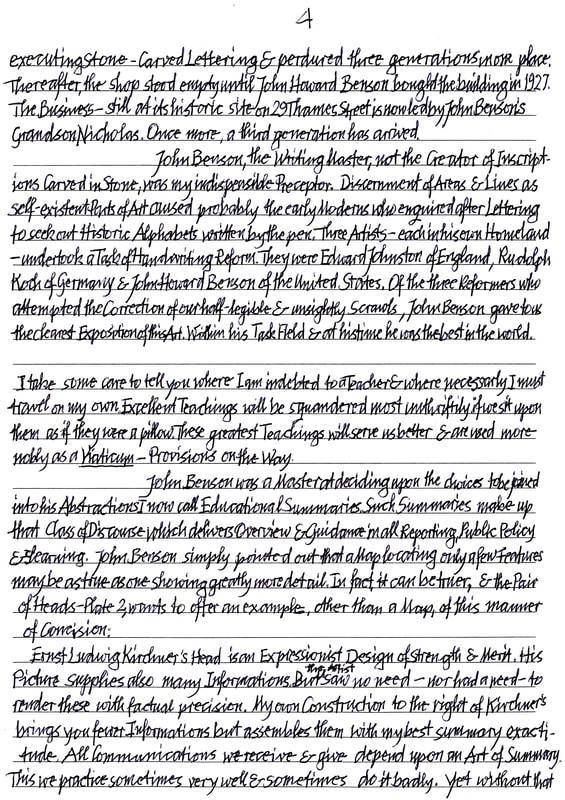 4
executing stone-Carved Lettering & perdured three generations in one place.
Thereafter, the shop stood empty until John Howard Benson bought the building in 1927.
The Business - still at its historic site on 29 Thames Street is now led by John Benson's
Grandson Nicholas. Once more, a third generation has arrived.
John Benson, the Writing Master, not the Creator of Inscript-
ions Carved in Stone, was my indispensible Preceptor. Discernment of Areas & Lines as
self-existent Parts of Art caused probably the early Moderns who enquired after Lettering
to seek out Historic Alphabets written by the pen. Three Artists - each in his own Homeland
- undertook a Task of Handwriting Reform. They were Edward Johnston of England, Rudolph
Koch of Germany & John Howard Benson of the United States. Of the three Reformers who
attempted the Correction of our half-legible & unsightly Scrawls, John Benson gave to us
the clearest Exposition of this Art. Within his Task Field & at his time he was the best in the world.
I take some care to tell you where I am indebted to a Teacher & where necessarily I must
travel on my own. Excellent Teachings will be squandered most unthriftily if we sit upon
them as if they were a pillow. These greatest Teachings will serve us better & are used more
nobly as a Viaticum - Provisions on the Way.
John Benson was a Master at deciding upon the choices to be joined
into his Abstractions I now call Educational Summaries. Such Summaries make up
that Class of Discourse which delivers Overview & Guidance in all Reporting, Public Policy
& Learning. John Benson simply pointed out that a Map locating only a few Features
may be as true as one showing greatly more detail. In fact, it can be truer, & the Pair
of Heads - Plate 2, wants to offer an example, other than a Map, of this manner
of Concision:
Ernst Ludwig Kirchner's Head is an Expressionist Design of Strength & Merit. His
Picture supplies also many Informations. But the Artist saw no need - nor had a need - to
render these with factual precision. My own Construction to the right of Kirchner's
brings you fewer Informations but assembles them with my best summary exacti-
tude. All Communications we receive & give depend upon an Art of Summary.
This we practice sometimes very well & sometimes do it badly. Yet without that